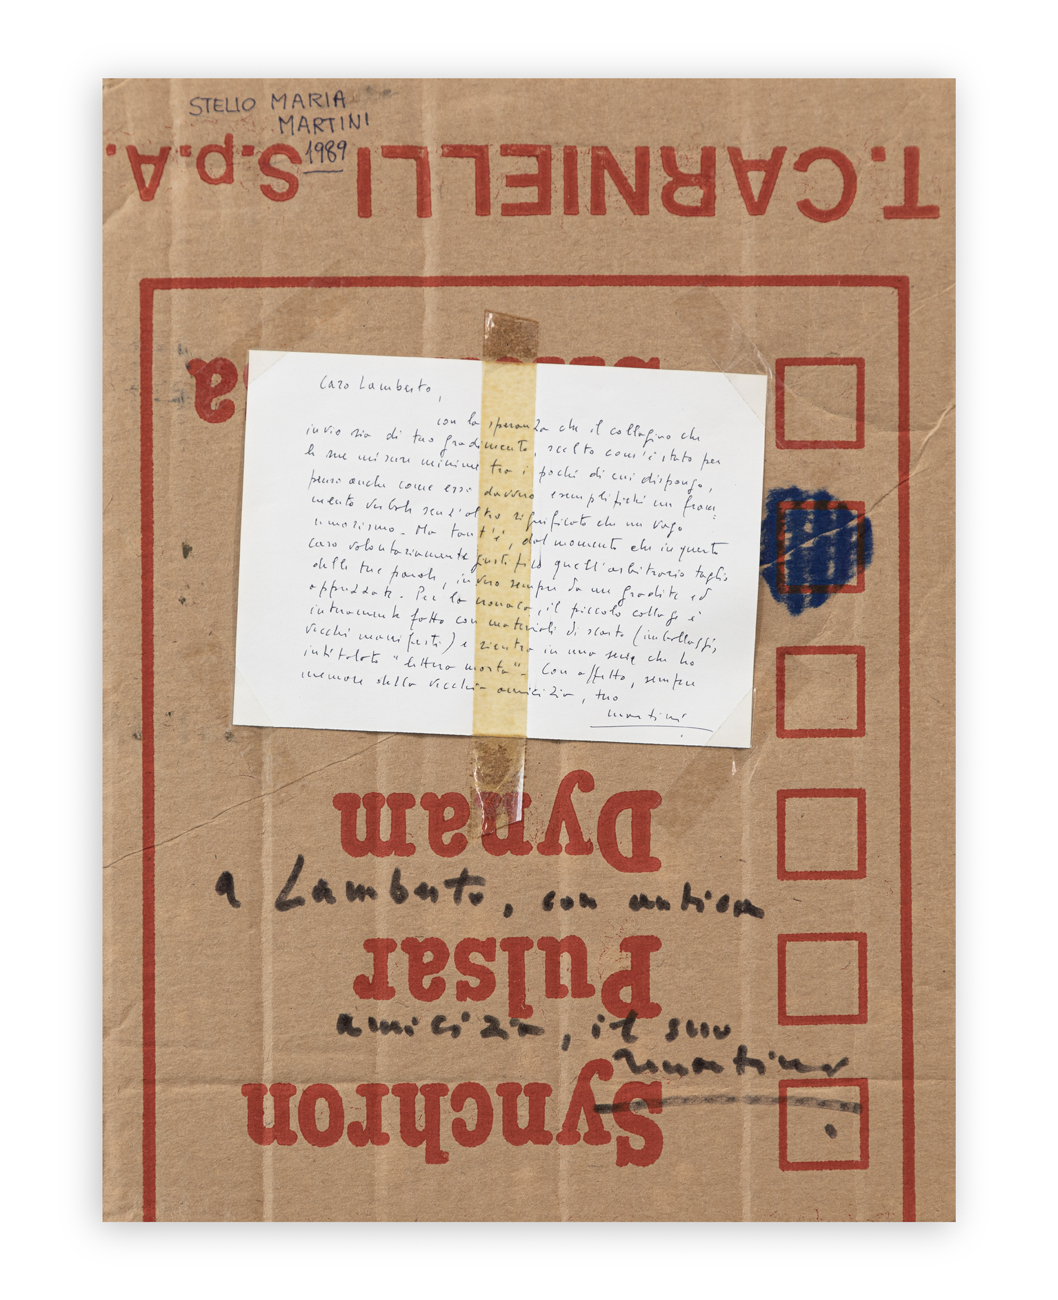 STELIO MARIA
MARTINI
1989
T. CARNIELLI S.p.A.
Caro Lamberto,
con la speranza che il collagino che
invio sia di tuo gradimento, scelto com'è stato per
le sue misure minime tra i pochi di cui dispongo,
penso anche come esso davvero esemplifichi un fram-
mento verbale senz'altro significato che un vago
umorismo. Ma tant'è, dal momento che in questo
caso volontariamente giustifico quell'arbitrario taglio
delle tue parole, invero sempre da me gradite ed
apprezzate. Per la cronaca, il piccolo collage è
interamente fatto con materiali di scarto (imballaggi,
vecchi manifesti) e rientra in una serie che ho
intitolato "lettera morta". Con affetto, sempre
memore della vecchia amicizia, tuo
martini
Dynam
a Lamberto, con antica
Pulsar
amicizia, il suo
martini
Synchron